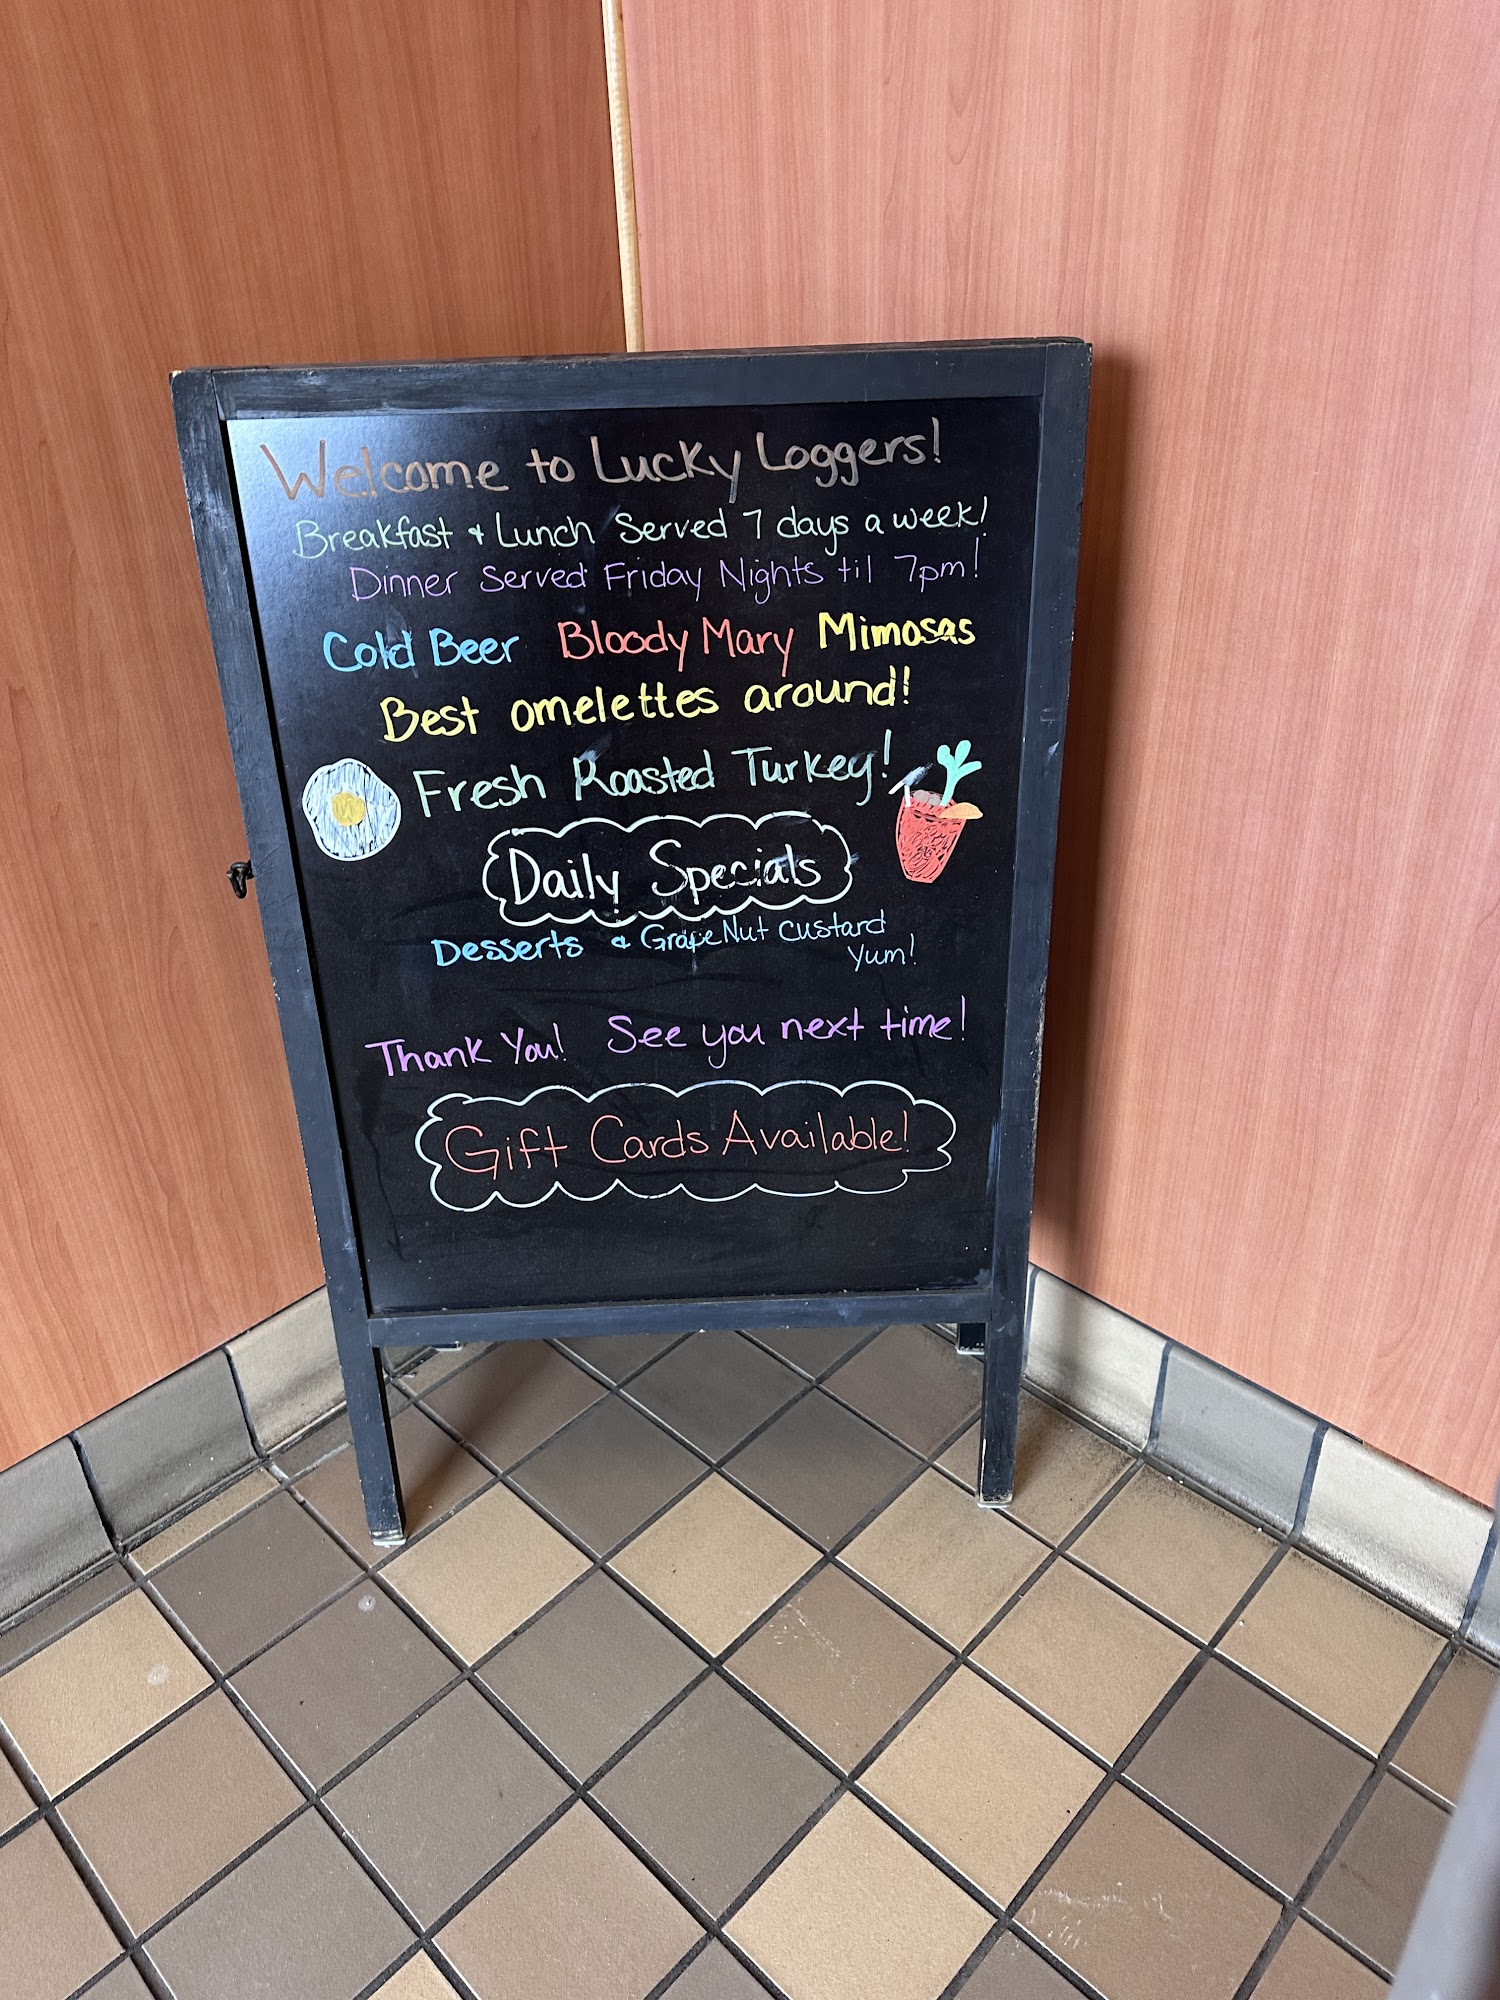 Welcome to Lucky Loggers!
Breakfast & Lunch Served 7 days a week!
Dinner Served Friday Nights til 7pm!
Cold Beer Bloody Mary Mimosas
Best omelettes around!
Fresh Roasted Turkey!
Daily Specials
Desserts & GrapeNut custard
Yum!
Thank You! See you next time!
Gift Cards Available!